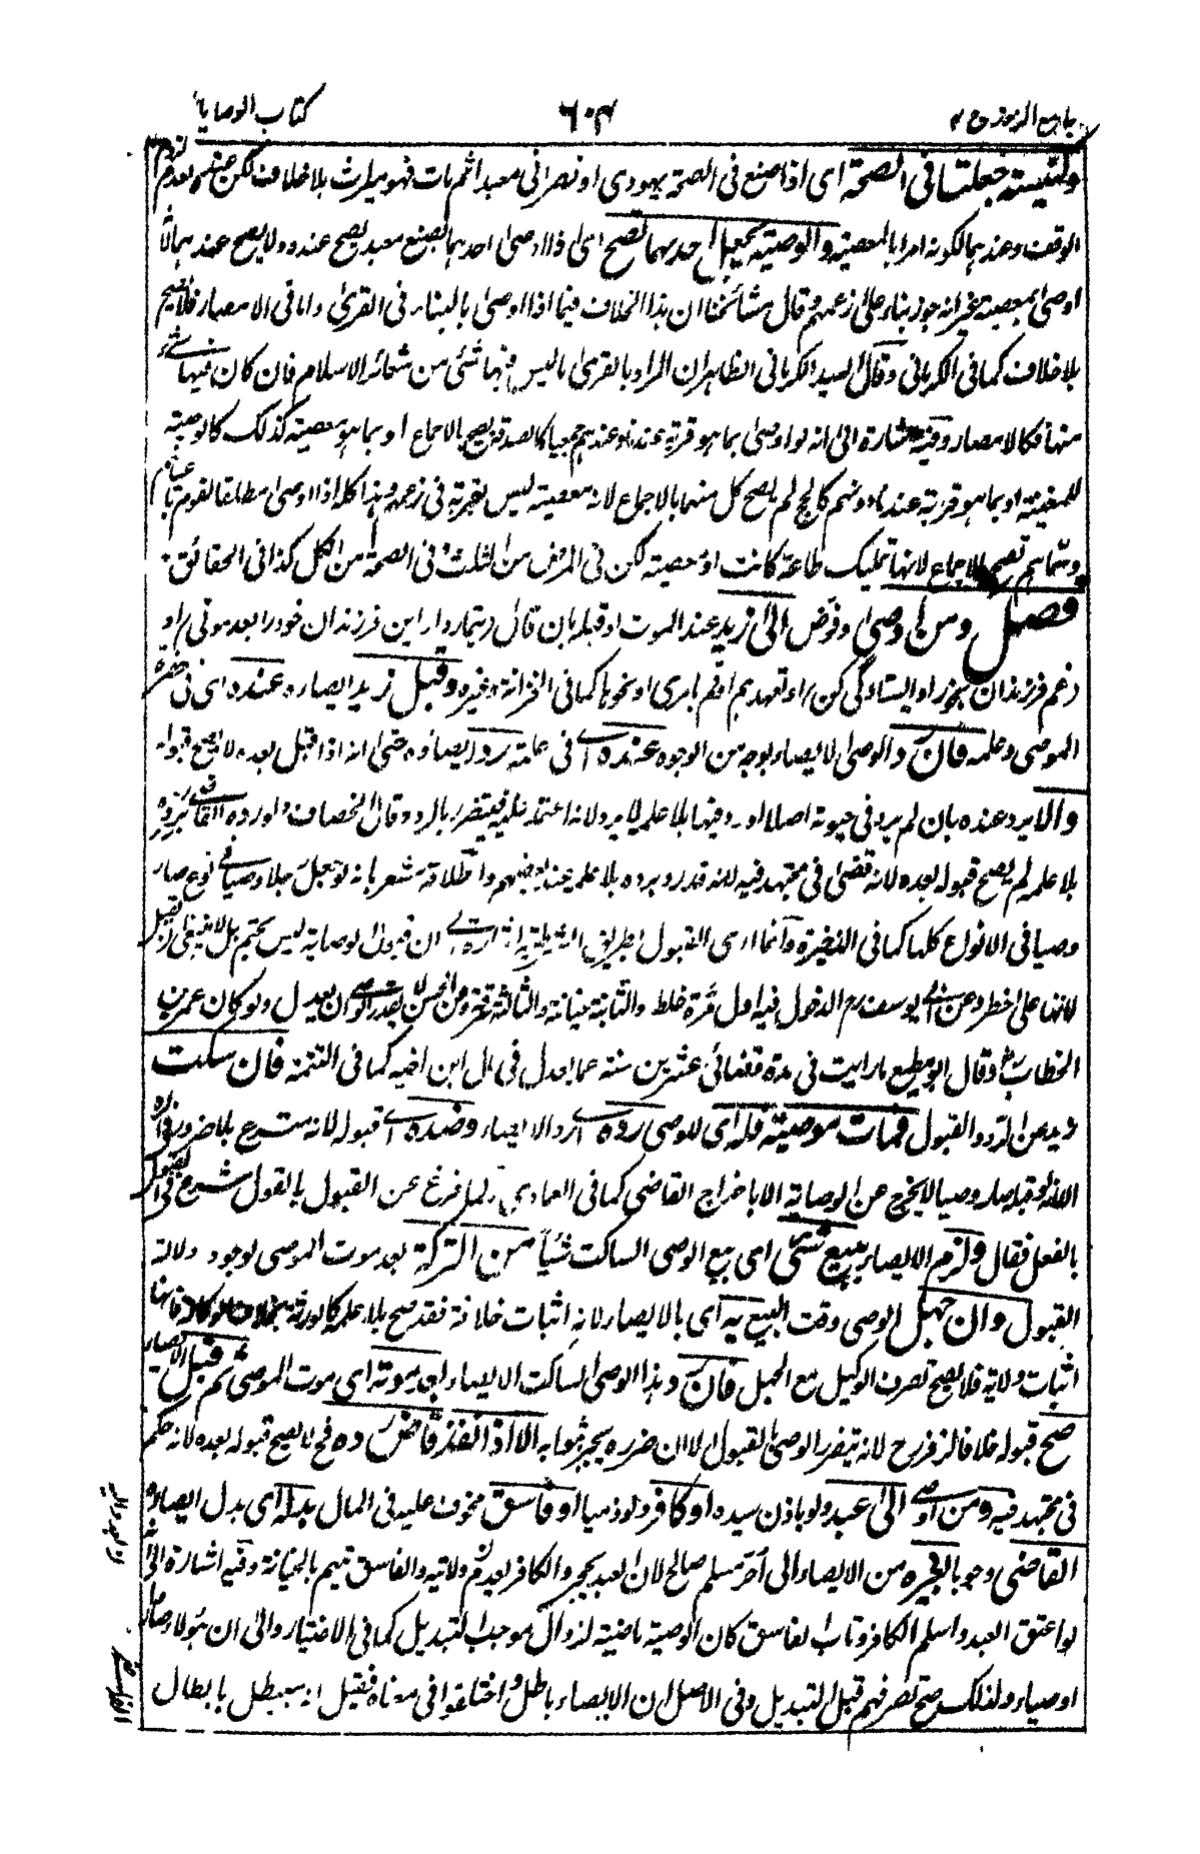 جامع الرموز ج ٢
٦٠٣
كتاب الوصايا
وكنيسة جعلتا فى الصحة اى اذا صنع فى الصحة يهودى او نصرانى معبدا ثم مات فهو ميراث بلا خلاف لكن عنده لعدم لزوم
الوقف وعندهما لكونه امرا بالمعصية والوصية بجعل احدهما تصح اى اذا اوصى احدهما لصنع معبد يصح عنده ولا يصح عندهما لانه
اوصى بمعصية غير انه جوز بناء على زعمهم وقال مشائخنا ان هذا الخلاف فيما اذا اوصى بالبناء فى القرى واما فى الامصار فلا يصح
بلا خلاف كما فى الكرمانى وقال السيد الكرمانى الظاهر ان المراد بالقرى ما ليس فيها شئ من شعائر الاسلام فان كان فيها شئ
منها فكالامصار وفيه اشارة الى انه لو اوصى بما هو قربة عندنا وعندهم جميعا كالصدقة يصح بالاجماع او بما هو معصية كذلك كالوصية
للمغنية او بما هو قربة عندنا دونهم كالحج لم يصح كل منهما بالاجماع لانه معصية ليس بقربة فى زعمه وهذا كله اذا اوصى مطلقا لقوم باعيانهم
وسماهم تصح بالاجماع لانها تمليك طاعة كانت او معصية لكن فى المرض من الثلث وفى الصحة من الكل كذا فى الحقائق
فصل ومن اوصى وفوض الى زيد عند الموت او قبله بان قال تيمار دار اين فرزندان خود را بعد موتى او
غم فرزندان بخور او ايستادگى كن او تعهدهم او قم بامرى او نحوها كما فى الخزانة وغيره وقبل زيد ايصاءه عنده اى فى حضرة
الموصى وعلمه فان رد الوصى الايصاء بوجه من الوجوه عنده اى فى علمه يرد ايصاؤه حتى انه اذا قبل بعده لا يصح قبوله
والا يرد عنده بان لم يرد فى حيوته اصلا او رد فيها بلا علمه لا يرد لانه اعتمد عليه فيتضرر بالرد وقال الخصاف لو رده القاضى
بلا علمه لم يصح قبوله بعده لانه قضى فى مجتهد فيه لانه قد رد برده بلا علمه عند بعضهم واطلاقه مشعر بانه لو جعل رجلا وصيا فى نوع صار
وصيا فى الانواع كلها كما فى الذخيرة وانما ان قبول الوصاية ليس بحتم بل لا ينبغى ان يقبل
لانها على خطر وعن ابى يوسف رح الدخول فيه اول مرة غلط والثانية خيانة والثالثة سرقة وعن الحسن لا يقدر الوصى ان يعدل ولو كان عمر بن
الخطاب رض وقال ابو مطيع ما رايت فى مدة قضائى عشرين سنة عما يعدل فى مال ابن اخيه كما فى التتمة فان سكت
زيد عن الرد والقبول فمات موصيه فله اى للوصى رده اى رد الايصاء وضده اى قبوله لانه متبرع بلا ضرورة
قبله صار وصيا لا يخرج عن الوصاية الا باخراج القاضى كما فى العمادى ولما فرغ عن القبول بالقول شرع فى القبول
بالفعل فقال ولزم الايصاء ببيع شئ اى بيع الوصى الساكت شيأ من التركة بعد موت الموصى لوجود دلالة
القبول وان جهل الوصى وقت البيع به اى بالايصاء لانه اثبات خلافة فقد صح بلا علمه كالوراثة بخلاف الوكالة فانها
اثبات ولاية فلا يصح تصرف الوكيل مع الجهل فان رد هذا الوصى الساكت الايصاء بعد موته اى موت الموصى ثم قبل الايصاء
صح قبوله خلافا لزفر رح لانه تيضرر الوصى بالقبول الا ان ضرره يجبر بثوابه الا اذا نفذ قاض رده فح لا يصح قبوله بعده لانه حكم
فى مجتهد فيه ومن اوصى الى عبد ولو باذن سيده او كافر ولو ذميا او فاسق مخوف عليه فى المال بدله اى بدل ايصاءه
القاضى وجوبا بغيره من الايصاء الى آخر مسلم صالح لان العبد يحجر والكافر لعدم ولايته والفاسق تيهم بالخيانة وفيه اشارة الى انه
لو اعتق العبد واسلم الكافر وتاب الفاسق كان الوصية ماضية لزوال موجب التبديل كما فى الاختيار والى ان هؤلاء صاروا
اوصياء ولذلك صح تصرفهم قبل التبديل وفى الاصل ان الايصاء باطل واختلفوا فى معناه فقيل انه سيبطل بابطال